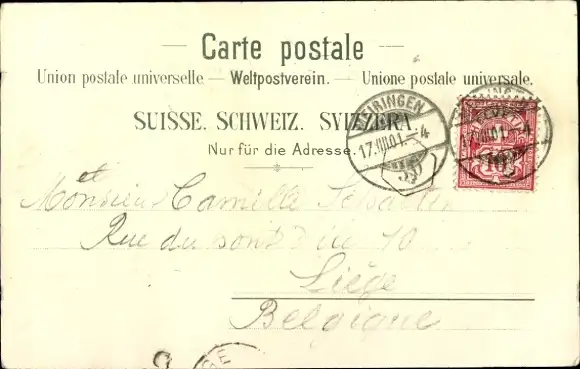 — Carte postale —
Union postale universelle — Weltpostverein. — Unione postale universale.
SUISSE. SCHWEIZ. SVIZZERA.
Nur für die Adresse.
EIRINGEN
17.VIII.01.–4
HELVETIA
10
et
Monsieur Camille
Rue du 10
Liège
Belgique